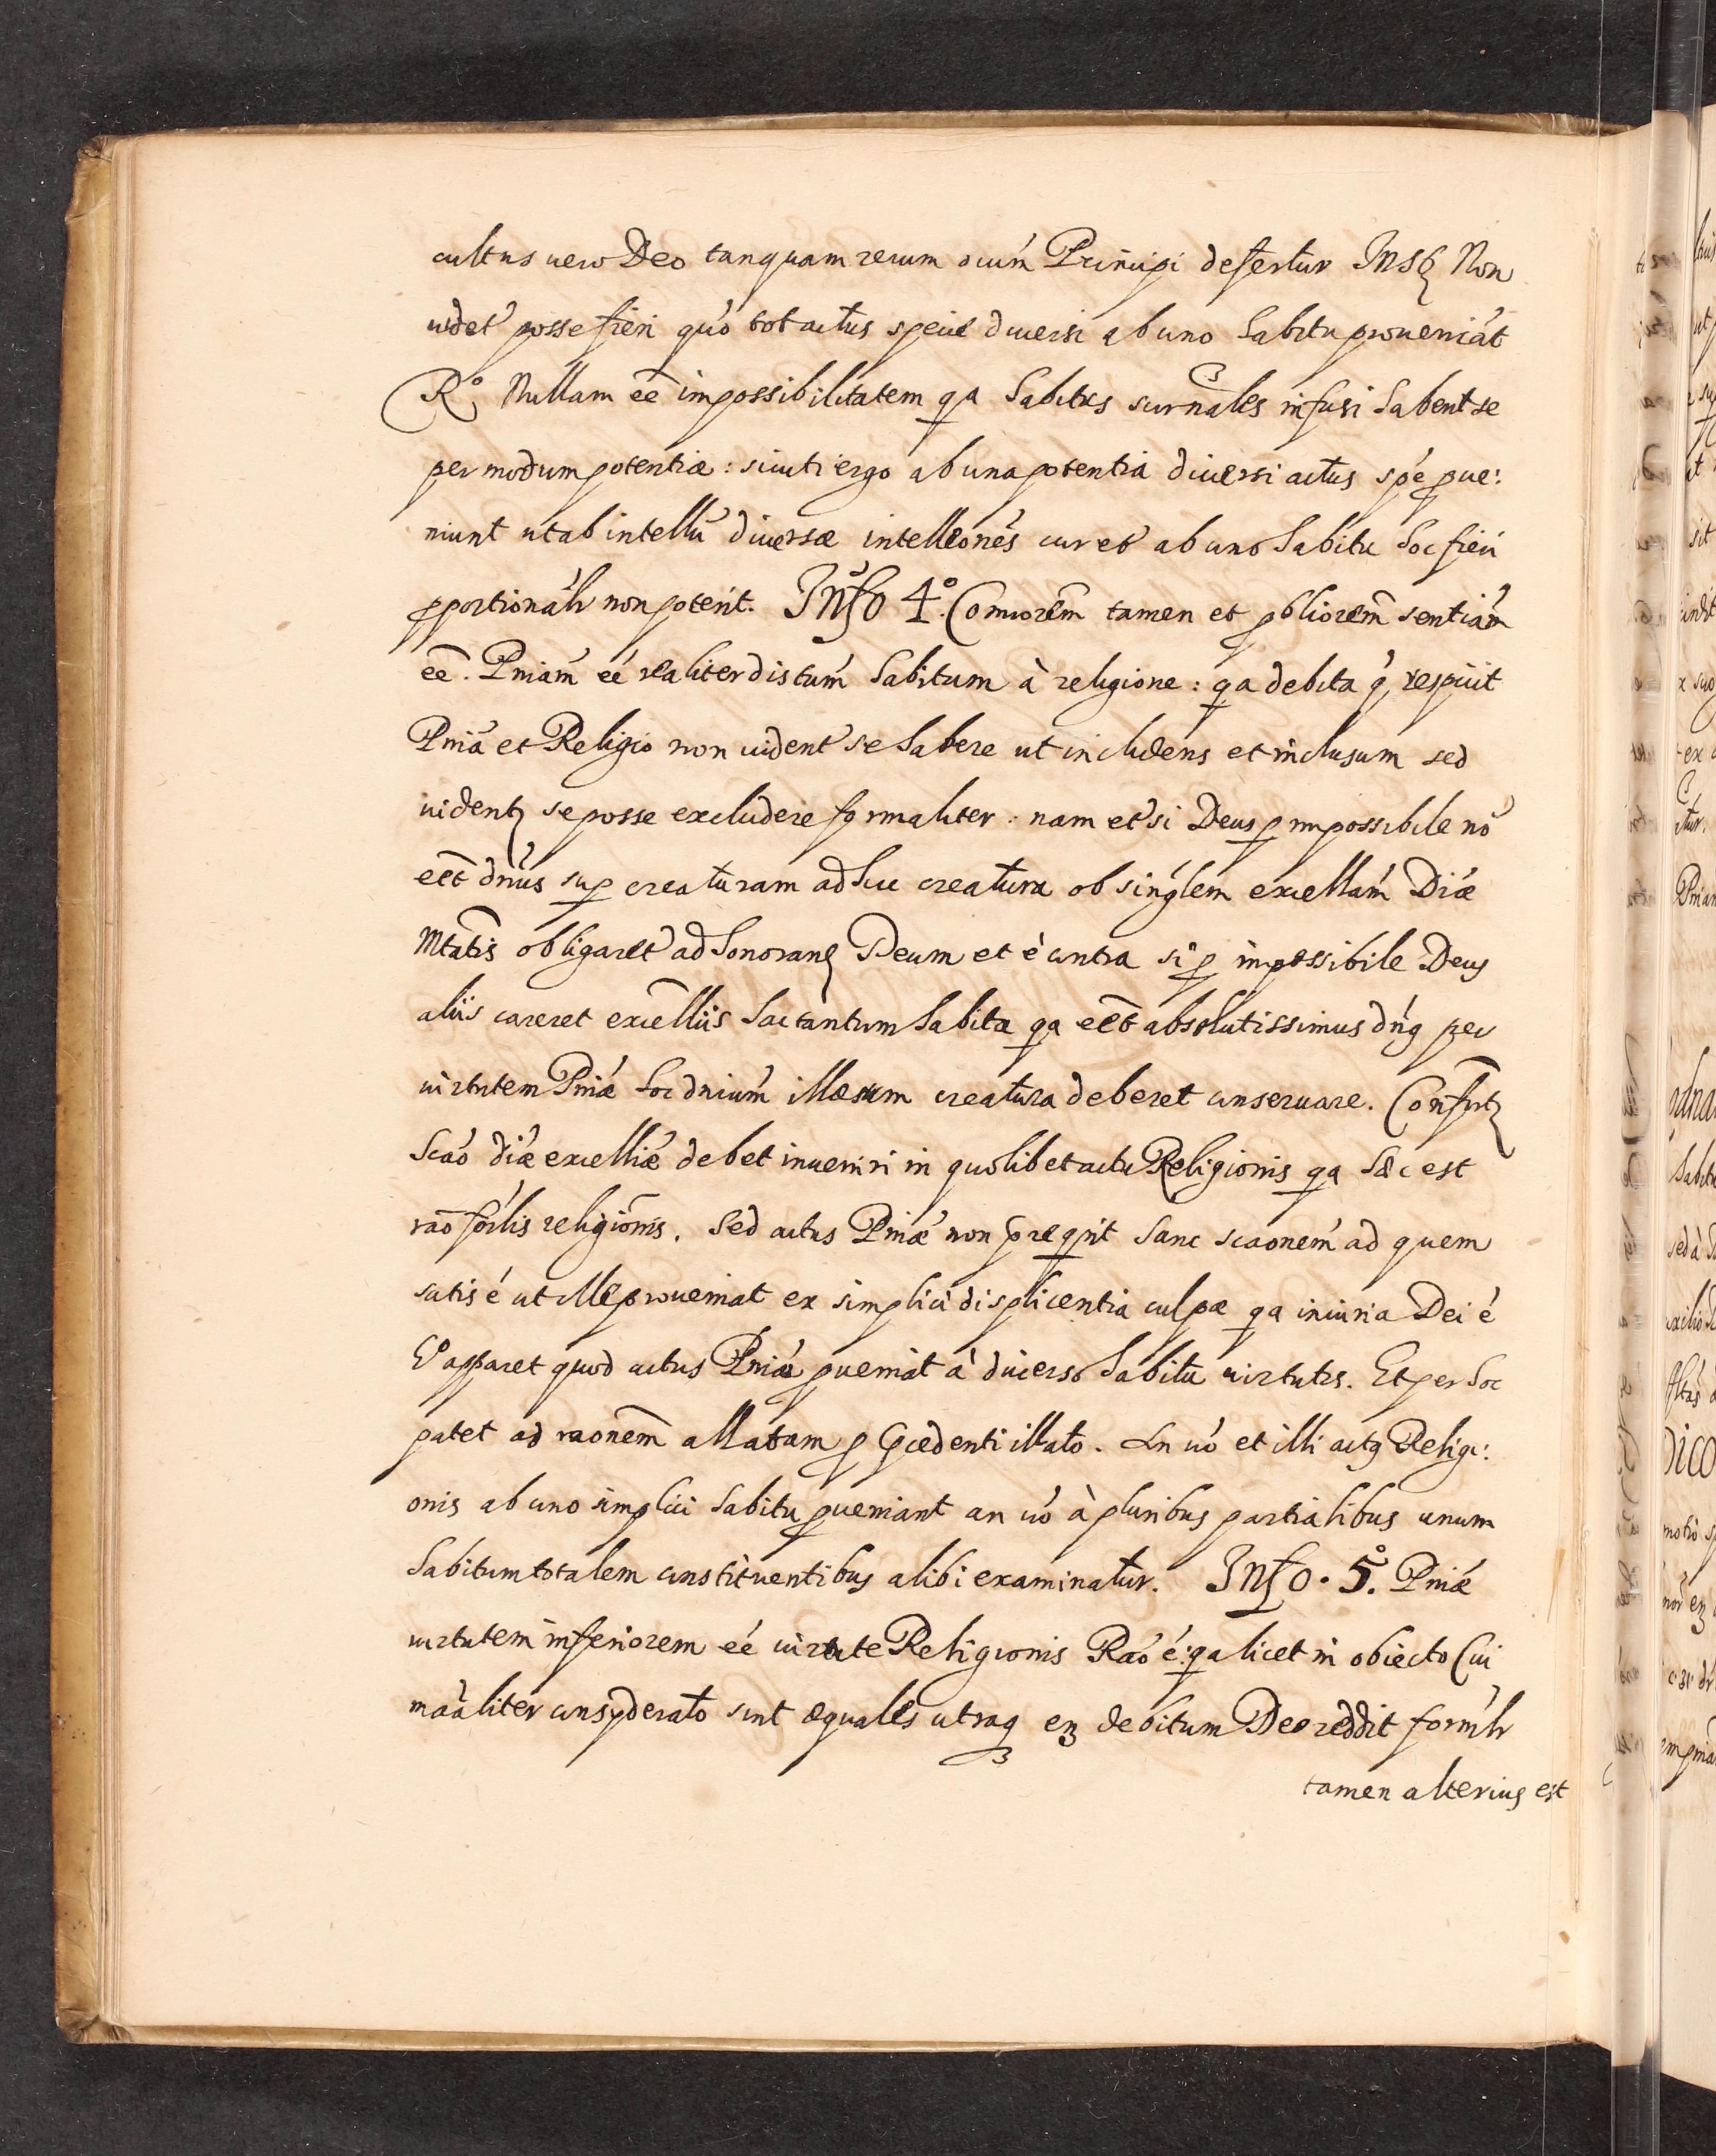 cultus uero Deo tanquam rerum oium Principi defertur Insq Non
uidet posse fieri quo tot actus specie diuersi ab uno habitu proueniat
Ro Nullam ee impossibilitatem qa habitus surnales infusi habent se
per modum potentiæ: sicuti ergo ab una potentia diuersi actus spe pue:
niunt ut ab intellu diuersæ intelleones cur et ab uno habitu hoc fieri
pportionalr non poterit. Info 4.o Comiorem tamen et pbliorem sentiam
ee. Pniam ee realiter distum habitum à religione: qa debita q respicit
Pnia et Religio non uident se habere ut includens et inclusum sed
uident se posse excludere formaliter: nam etsi Deus p impossibile no
eet dnus sup creaturam adhuc creatura ob singlem excellam Diæ
Mtatis obligaret ad honorand Deum et è contra si p impossibile Deus
aliis careret excelliis hac tantum habita qa eet absolutissimus dnq per
uirtutem Pniæ hoc dnium illæsum creatura deberet conseruare. Confirt
Scao diæ excelliæ debet inueniri in quolibet actu Religionis qa hæc est
rao forlis religionis. Sed actus Pniæ non preqrit hanc scaonem ad quem
satis é ut ille proueniat ex simplici displicentia culpæ qa iniuria Dei é
Vo apparet quod actus Pniæ pueniat à diuerso habitu uirtutis. Et per hoc
patet ad raonem allatam p pcedenti illato. An uo et illi actq Religi:
onis ab uno simplici habitu pueniant an uo à pluribus partialibus unum
habitum totalem constituentibus alibi examinatur. Info. 5.o Pniæ
uirtutem inferiorem eé uirtute Religionis Rao é: qa licet in obiecto Cui
maaliter consyderato sint æquales utraq en debitum Deo reddit formlr
tamen alterius est